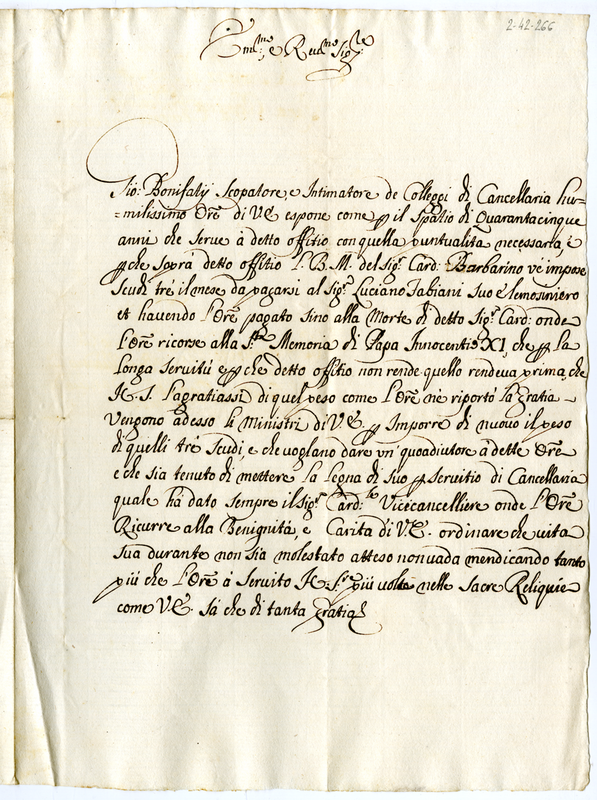 2-42-266
Em.mo e Reu.mo Sig.re
Gio: Bonifatij Scopatore, e Intimatore de Colleggi di Cancellaria hu-
=milissimo Ore di V.E. espone come p il spatio di Quarantacinque
anni che serue à detto offitio con quella puntualità necessaria, e
p che soprà detto offitio l. B. M. del Sig.r Card: Barbarino ve impose
scudi trè il mese da pagarsi al Sig.r Luciano Fabiani suo elemosiniero
et hauendo l'Ore pagato sino alla Morte di detto Sig.r Card: onde
l'Ore ricorse alla S.ta Memoria di Papa Innocentio XI, che p la
longa seruitù e p che detto offitio non rende quello rendeua prima, che
N. S. lagratiassi di quel peso come l'Ore nè riportò la gratia
Vengono adesso li Ministri di V.E. p Imporre di nuouo il peso
di quelli trè scudi, e che uogliano dare vn' quoadiutore à dette Ore
e che sia tenuto di mettere la legna di suo p seruitio di Cancellaria
quale hà dato sempre il Sig.r Card.le Vicecancelliere onde l'Ore
Ricurre alla Benignità, e Carita di V.E. ordinare che uita
sua durante non sia molestato atteso non uada mendicando tanto
più che l'Ore à seruito N. S.re più uolte nelle Sacre Reliquie
come V.E. sà che di tanta gratia